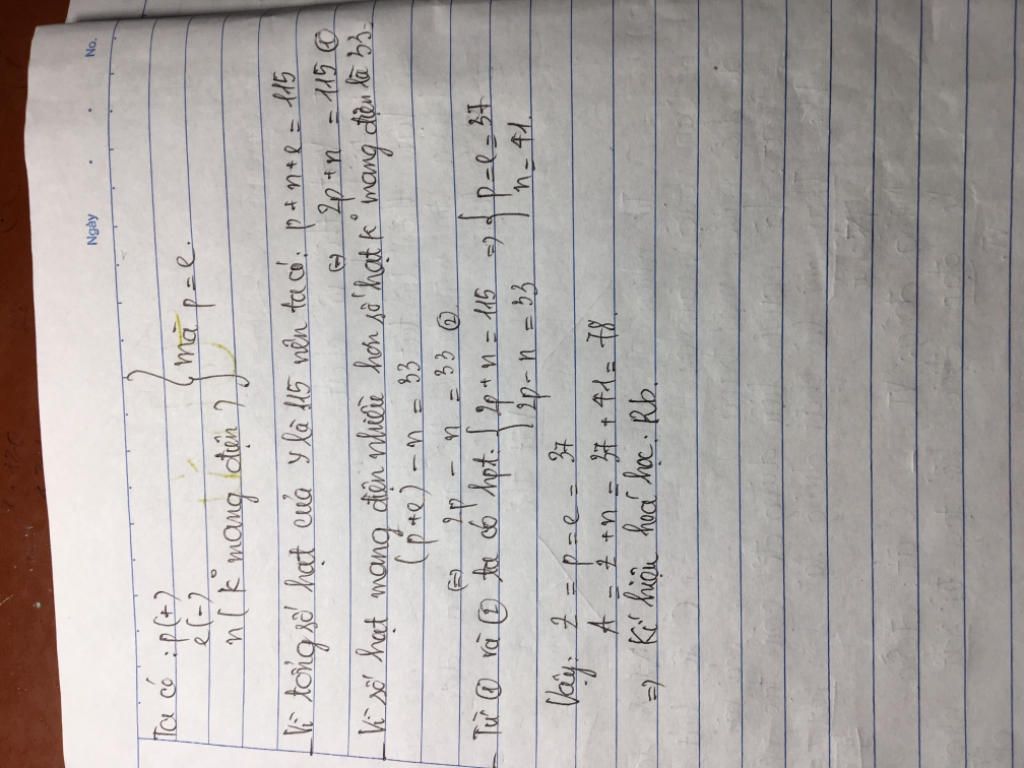 Ngày . . No.
Ta có : p(+)
e(-)
n( k° mang điện ) } mà p = e.
- Vì tổng số hạt của y là 115 nên ta có: p + n + e = 115
(=) 2p + n = 115 ①
- Vì số hạt mang điện nhiều hơn số hạt k° mang điện là 33.
(p+e) - n = 33
(=) 2p - n = 33 ②
- Từ ① và ② ta có hpt. { 2p + n = 115 => { p = e = 37
2p - n = 33 n = 41.
Vậy: Z = p = e = 37
A = Z + n = 37 + 41 = 78
=> Kí hiệu hoá học. Rb.